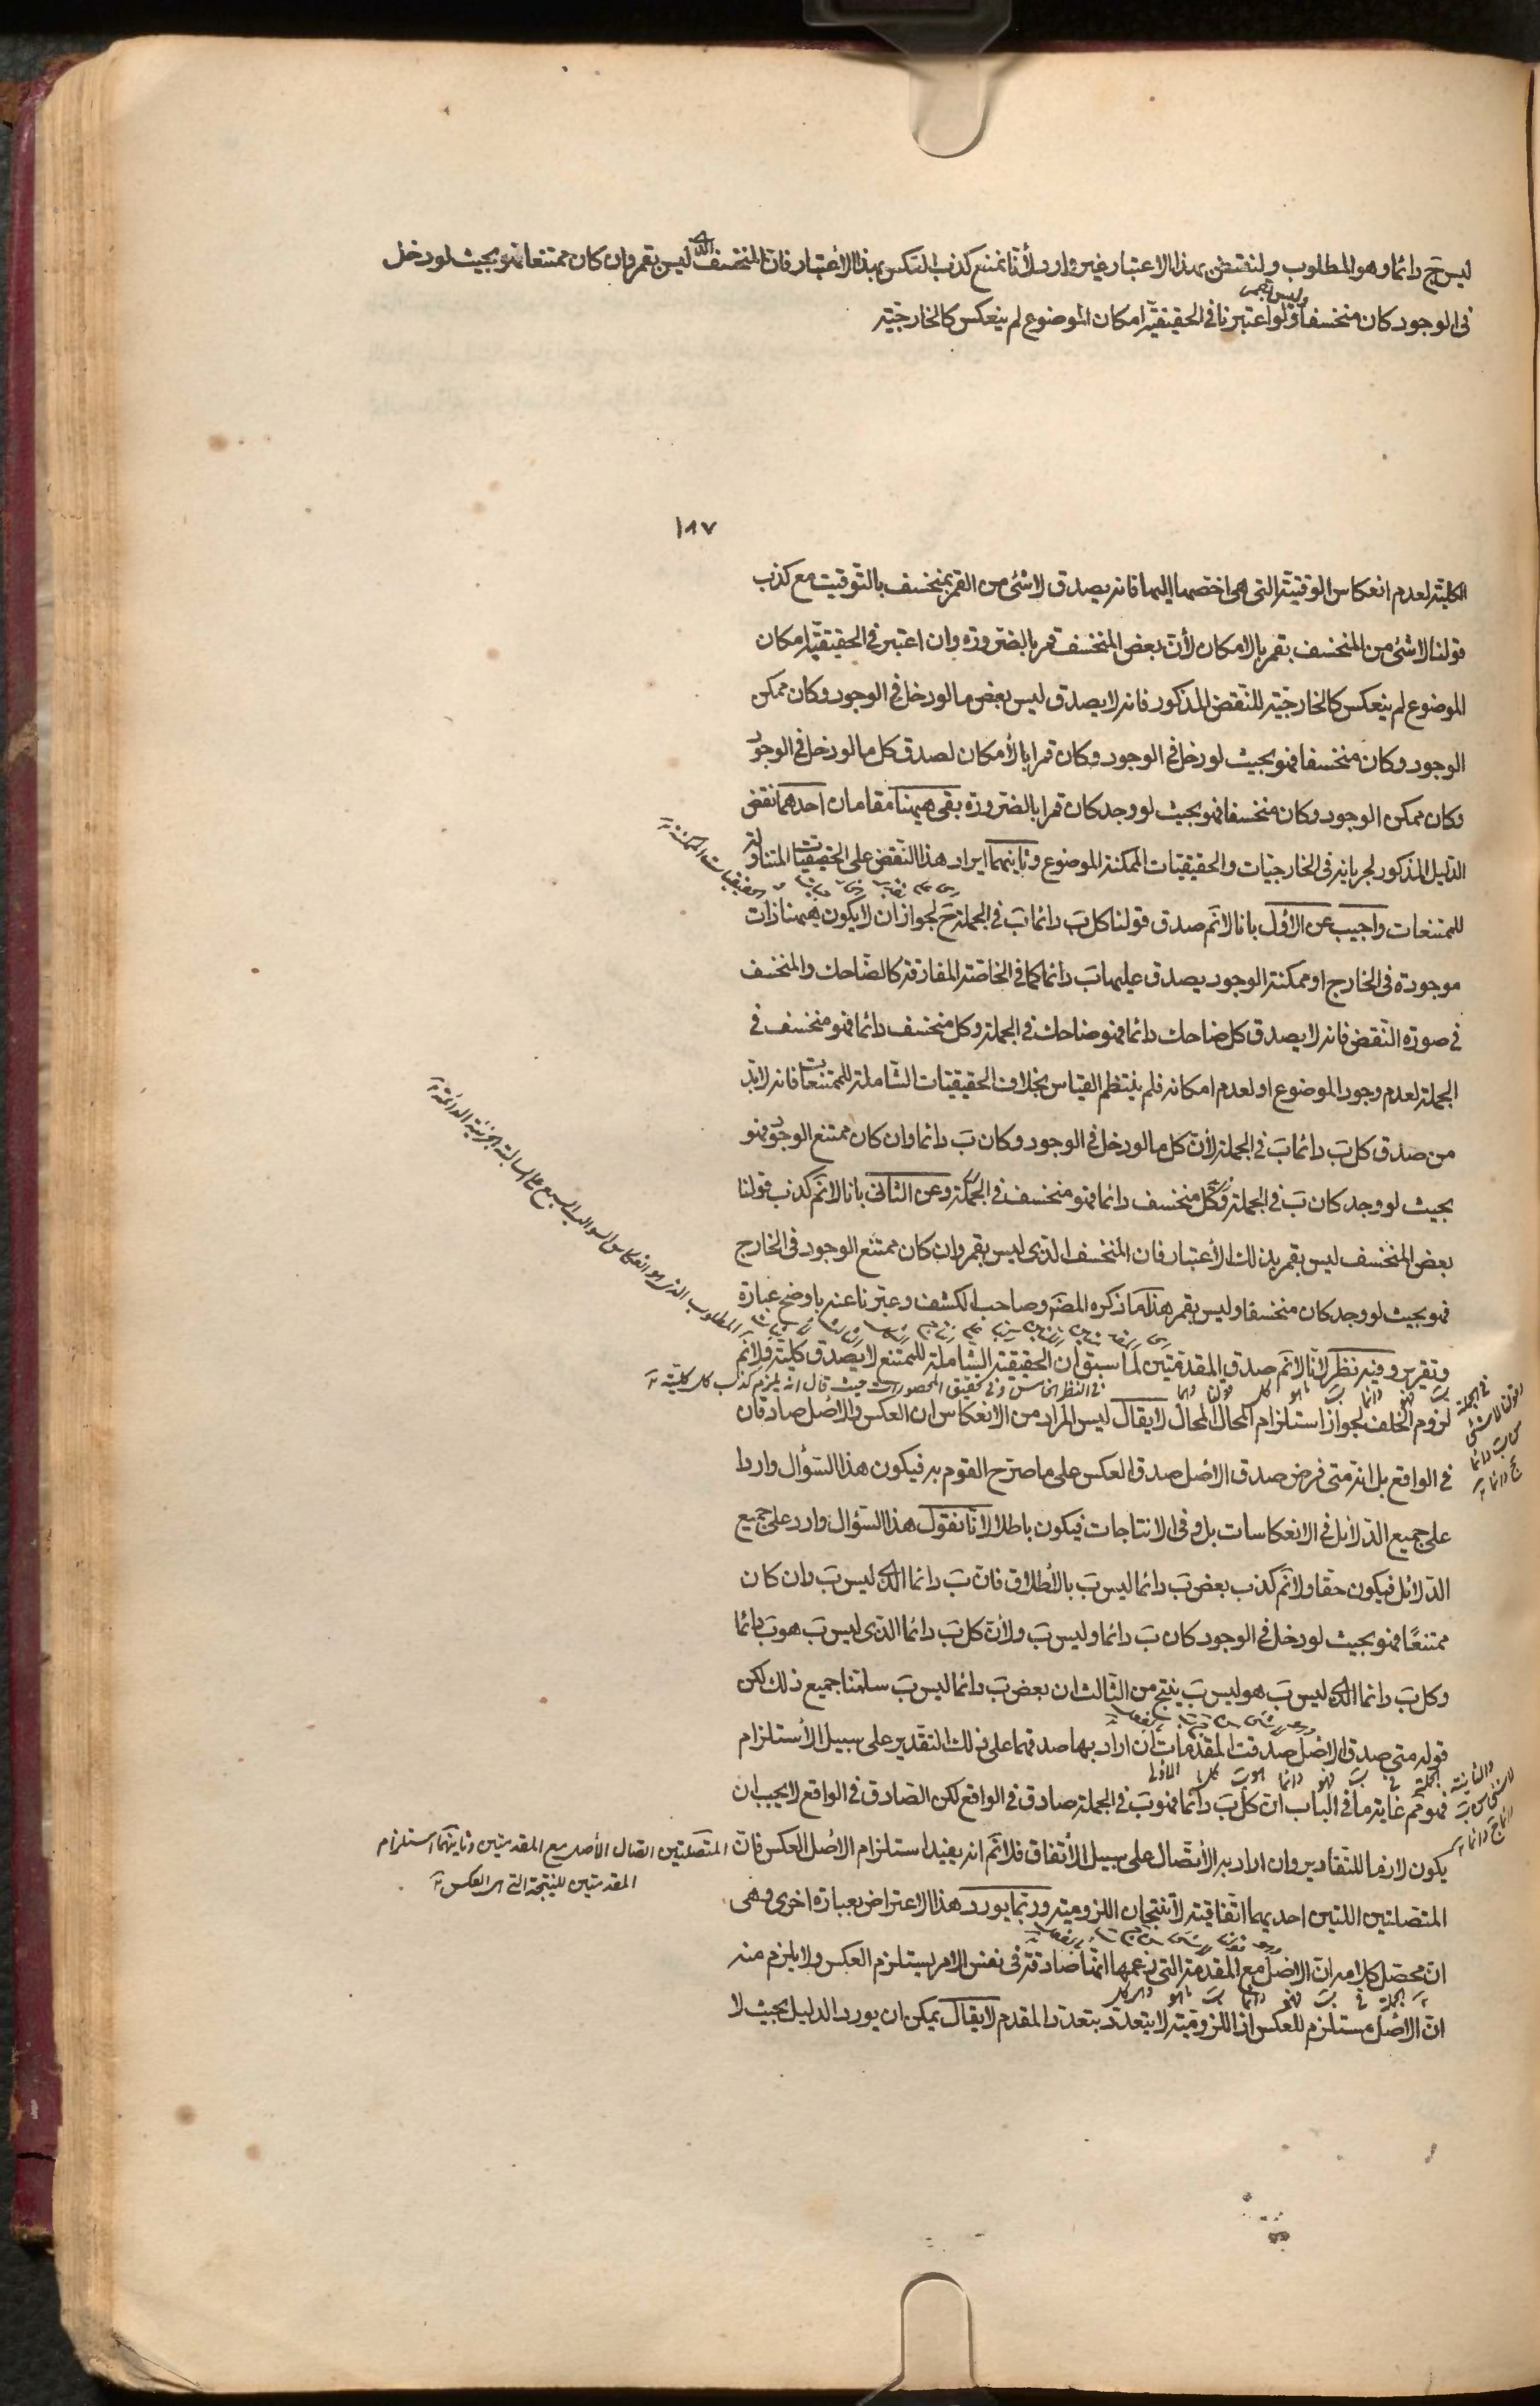 ليس ج دائما وهو المطلوب ولنقتض بهذا الاعتبار غير وارد لأنا نمنع كذب العكس بهذا الاعتبار فان المنخسف الذى ليس بقمر وان كان ممتنعا فهو بحيث لو دخل
وليس بقمر
فى الوجود كان منخسفا ولو اعتبرنا فى الحقيقيّة امكان الموضوع لم ينعكس كالخارجيّة
١٨٧
الكليّة لعدم انعكاس الوقتيّة التى هى اخصها اليها فانه يصدق لا شئ من القمر بمنخسف بالتّوقيت مع كذب
قولنا لا شئ من المنخسف بقمر بالامكان لأنّ بعض المنخسف قمر بالضّرورة وان اعتبر فى الحقيقيّة امكان
الموضوع لم ينعكس كالخارجيّة للنّقض المذكور فانه لا يصدق ليس بعض ما لو دخل فى الوجود وكان ممكن
الوجود وكان منخسفا فهو بحيث لو دخل فى الوجود وكان قمرا بالأمكان لصدق كل ما لو دخل فى الوجود
وكان ممكن الوجود وكان منخسفا فهو بحيث لو وجد كان قمرا بالضّرورة بقى ههنا مقامان احدهما نقض
الدّليل المذكور لجريانه فى الخارجيّات والحقيقيّات الممكنة الموضوع وثانيهما ايراد هذا النّقض على الحقيقيّات المتناولة
للممتنعات واجيب عن الاوّل بانا لا نَم صدق قولنا كل بَ دائما بَ فى الجملة حَ لجواز ان لا يكون ههنا ذات
موجودة فى الخارج او ممكنة الوجود يصدق عليها بَ دائما كما فى الخاصّة المفارقة كالضّاحك والمنخسف
فى صورة النّقض فانه لا يصدق كل ضاحك دائما فهو ضاحك فى الجملة وكل منخسف دائما فهو منخسف فى
الجملة لعدم وجود الموضوع او لعدم امكانه فلم ينتظم القياس بخلاف الحقيقيّات الشّاملة للممتنعات فانه لا بدّ
من صدق كل بَ دائما بَ فى الجملة لأنّ كل ما لو دخل فى الوجود وكان بَ دائما وان كان ممتنع الوجود فهو
بحيث لو وجد كان بَ فى الجملة وكل منخسف دائما فهو منخسف فى الجملة وعن الثانى بانا لا نَم كذب قولنا
بعض المنخسف ليس بقمر بذلك الأعتبار فان المنخسف الّذى ليس بقمر وان كان ممتنع الوجود فى الخارج
فهو بحيث لو وجد كان منخسفا وليس بقمر هذا ما ذكره المصَ وصاحب الكشف وعبّرنا عنه باوضح عبارة
وتقرير وفيه نظر لأنّا لا نَم صدق المقدّمتين لما سبق ان الحقيقيّة الشّاملة للممتنع لا يصدق كليّة ولا نَم
فى النظر الخامس وفى تحقيق المحصورات حيث قال انه يلزم كذب كل كلية
لزوم الخلف لجواز استلزام المحال المحال لا يقال ليس المراد من الانعكاس ان العكس والاصل صادقان
فى الواقع بل انه متى فرض صدق الاصل صدق العكس على ما صرّح القوم به فيكون هذا السّؤال واردا
على جميع الدّلائل فى الانعكاسات بل وفى الانتاجات فيكون باطلا لأنّا نقول هذا السّؤال وارد على جميع
الدّلائل فيكون حقّا ولا نَم كذب بعض بَ دائما ليس بَ بالأطلاق فانّ بَ دائما الذى ليس بَ وان كان
ممتنعًا فهو بحيث لو دخل فى الوجود كان بَ دائما وليس بَ ولأنّ كل بَ دائما الّذى ليس بَ هو بَ دائما
وكل بَ دائما الذى ليس بَ هو ليس بَ ينتج من الثّالث ان بعض بَ دائما ليس بَ سلّمنا جميع ذلك لكن
قوله متى صدق الاصل صدقت المقدّمات ان اراد بها صدقها على ذلك التقدير على سبيل الأستلزام
الاولى كل ما هو ب دائما فهو ب فى الجملة والثانية
لا شئ من ب دائما ج دائما
فهو مَم غاية ما فى الباب انّ كل بَ دائما فهو بَ فى الجملة صادق فى الواقع لكن الصّادق فى الواقع لا يجب ان
يكون لازما للتّقادير وان اراد به الأتّصال على سبيل الأتّفاق فلا نَم انه يفيد استلزام الاصل العكس فانّ
المتّصلتين اتصال الأصل مع المقدمتين وثانيتهما استلزام
المقدمتين للنتيجة التى هى العكس
المتّصلتين اللتين احديهما اتّفاقيّة لا تنتجان اللزوميّة وربّما يورد هذا الاعتراض بعبارة اخرى وهى
ان محصّل كلامه انّ الاصل مع المقدمة التى زعمها انّها صادقة فى نفس الامر يستلزم العكس ولا يلزم منه
وهى كل ما هو ب دائما فهو ب فى الجملة
انّ الاصل مستلزم للعكس اذ اللزوميّة لا يتعدّد بتعدّد المقدم لا يقال يمكن ان يورد الدليل بحيث لا
المطلوب الذى هو انعكاس السوالب السبع الى السالبة الجزئية الدائمة